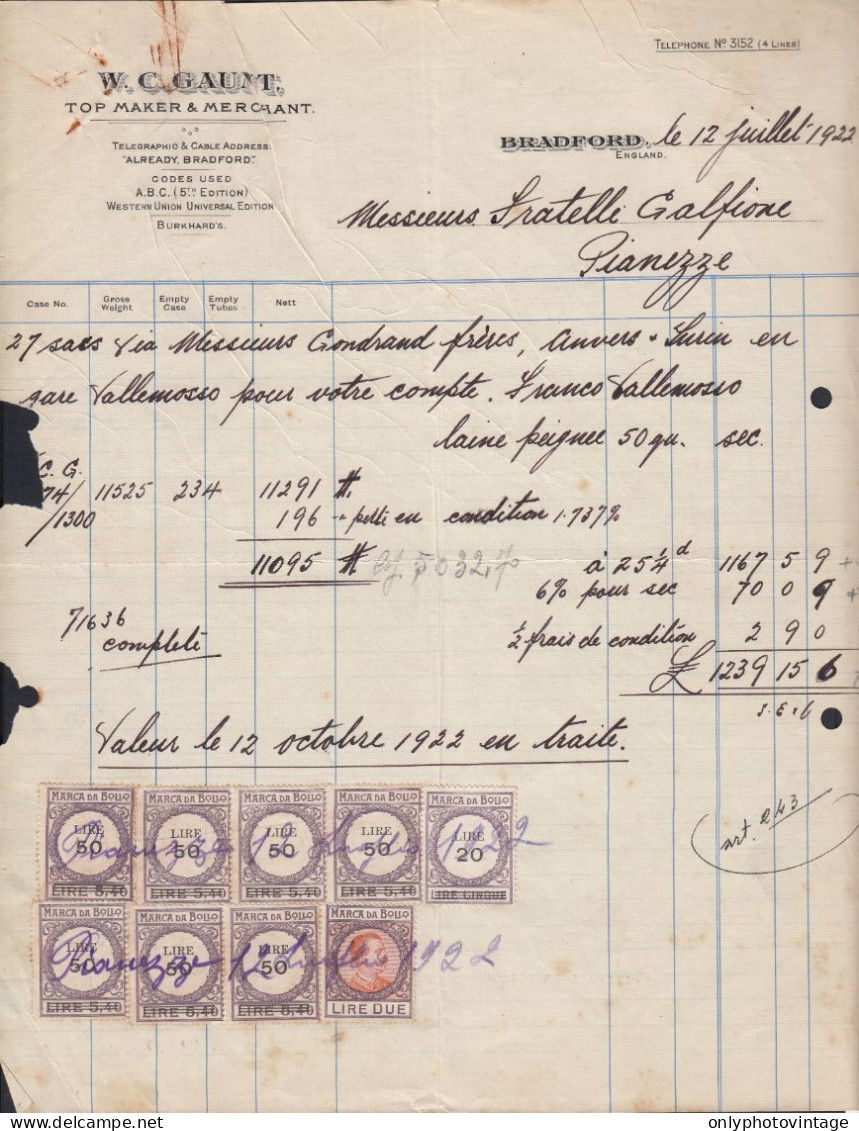 TELEPHONE Nº 3152 (4 LINES)
W. C. GAUNT,
TOP MAKER & MERCHANT.
TELEGRAPHIC & CABLE ADDRESS
"ALREADY, BRADFORD."
CODES USED
A.B.C. (5TH EDITION)
WESTERN UNION UNIVERSAL EDITION
BURKHARD'S.
BRADFORD, le 12 juillet 1922
ENGLAND.
Messieurs Fratelli Galfione
Pianezze
Case No. Gross Weight Empty Case Empty Tubes Nett
27 sacs via Messieurs Gondrand frères, Anvers - Turin en
gare Vallemosso pour votre compte. Franco Vallemosso
laine peignee 50 qu. sec.
C. G.
74/ 11525 234 11291 #.
/1300 196 " perte en condition 1.737%
11095 # à 25 1/4 d 1167 5 9
6% pour sec 70 0 9
71636 1/2 frais de condition 2 9 0
completé £ 1239 15 6
Valeur le 12 octobre 1922 en traite.
art. 243
MARCA DA BOLLO MARCA DA BOLLO MARCA DA BOLLO MARCA DA BOLLO MARCA DA BOLLO
LIRE 50 LIRE 50 LIRE 50 LIRE 50 LIRE 20
LIRE 5,40 LIRE 5,40 LIRE 5,40 LIRE 5,40 LIRE CINQUE
Pianezze 12 Luglio 1922
MARCA DA BOLLO MARCA DA BOLLO MARCA DA BOLLO MARCA DA BOLLO
LIRE 50 LIRE 50 LIRE 50
LIRE 5,40 LIRE 5,40 LIRE 5,40 LIRE DUE
Pianezze 12 Luglio 1922
onlyphotovintage